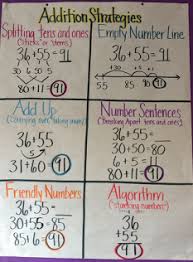 Addition Strategies
Splitting Tens and Ones
(Sticks or Stems)
36+55=91
30 6 50 5
80+11=91
Empty Number Line
36+55=91
55 85 91
Add Up
36+55=
31+60=91
Number Sentences
(Breaking Apart Tens and Ones)
36+55=
30+50=80
6+5=11
80+11=91
Friendly Numbers
36+55=
30+55=85
85+6=91
Algorithm
(stacking numbers)
36
+55
91